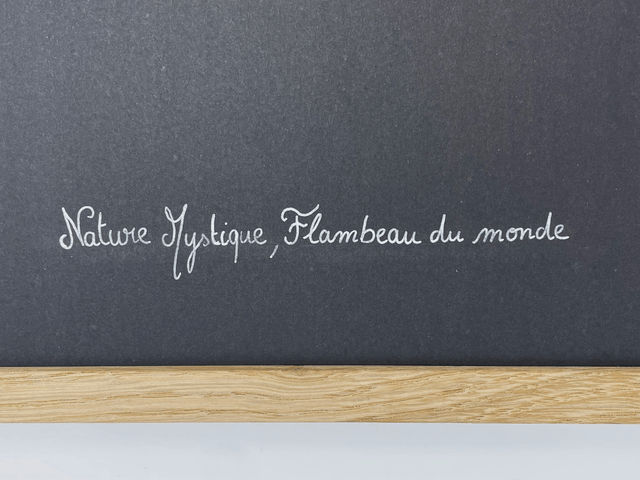 Nature Mystique, Flambeau du monde